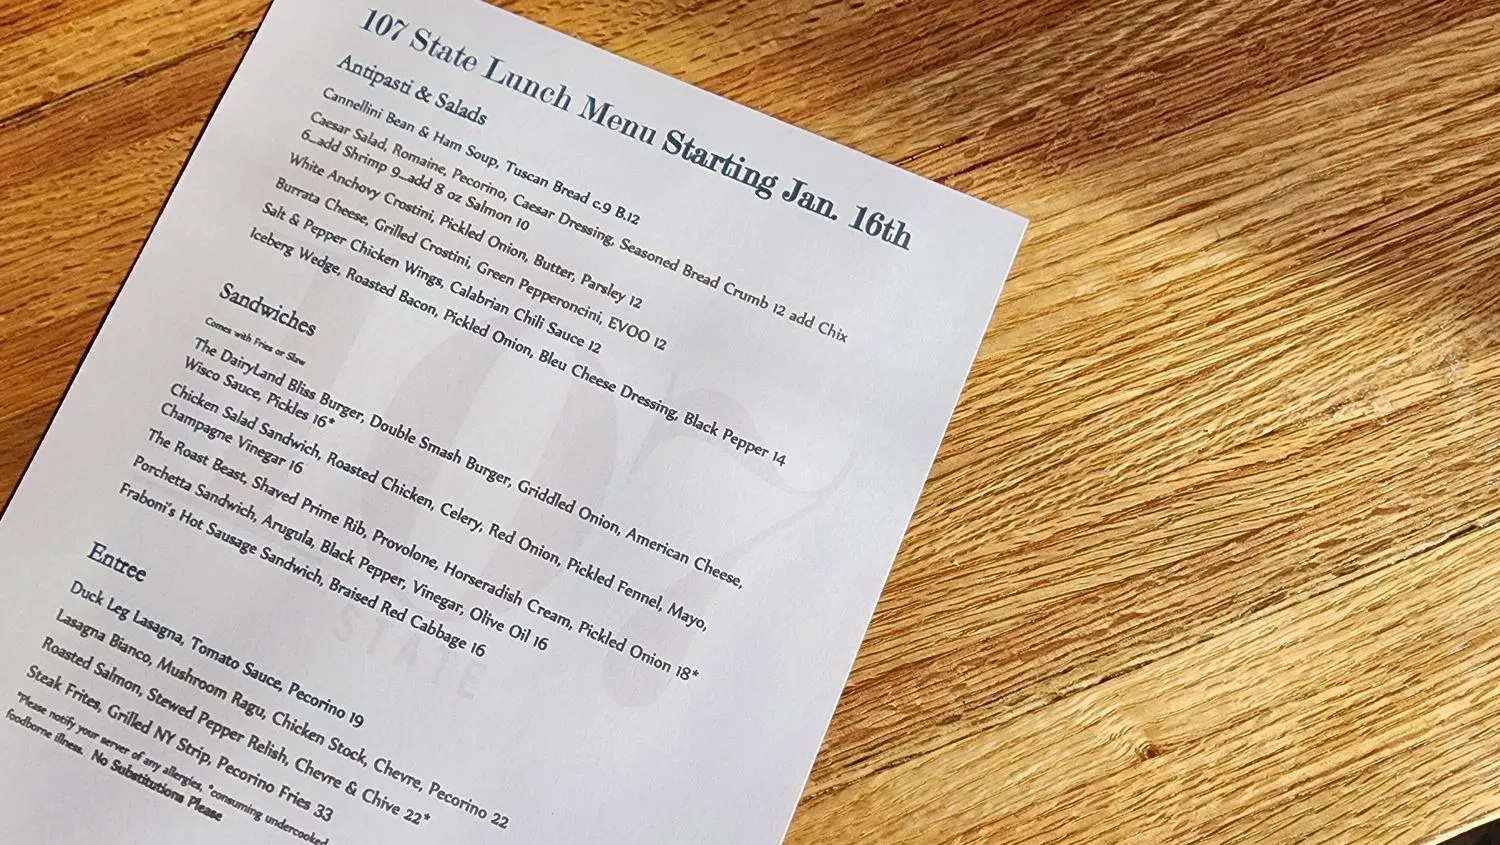 107 State Lunch Menu Starting Jan. 16th
Antipasti & Salads
Cannellini Bean & Ham Soup, Tuscan Bread c.9 B.12
Caesar Salad, Romaine, Pecorino, Caesar Dressing, Seasoned Bread Crumb 12 add Chix
6...add Shrimp 9...add 8 oz Salmon 10
White Anchovy Crostini, Pickled Onion, Butter, Parsley 12
Burrata Cheese, Grilled Crostini, Green Pepperoncini, EVOO 12
Salt & Pepper Chicken Wings, Calabrian Chili Sauce 12
Iceberg Wedge, Roasted Bacon, Pickled Onion, Bleu Cheese Dressing, Black Pepper 14
Sandwiches
Comes with Fries or Slaw
The DairyLand Bliss Burger, Double Smash Burger, Griddled Onion, American Cheese,
Wisco Sauce, Pickles 16*
Chicken Salad Sandwich, Roasted Chicken, Celery, Red Onion, Pickled Fennel, Mayo,
Champagne Vinegar 16
The Roast Beast, Shaved Prime Rib, Provolone, Horseradish Cream, Pickled Onion 18*
Porchetta Sandwich, Arugula, Black Pepper, Vinegar, Olive Oil 16
Fraboni's Hot Sausage Sandwich, Braised Red Cabbage 16
Entree
Duck Leg Lasagna, Tomato Sauce, Pecorino 19
Lasagna Bianco, Mushroom Ragu, Chicken Stock, Chevre, Pecorino 22
Roasted Salmon, Stewed Pepper Relish, Chevre & Chive 22*
Steak Frites, Grilled NY Strip, Pecorino Fries 33
*Please notify your server of any allergies, *consuming undercooked
foodborne illness. No Substitutions Please
107
STATE